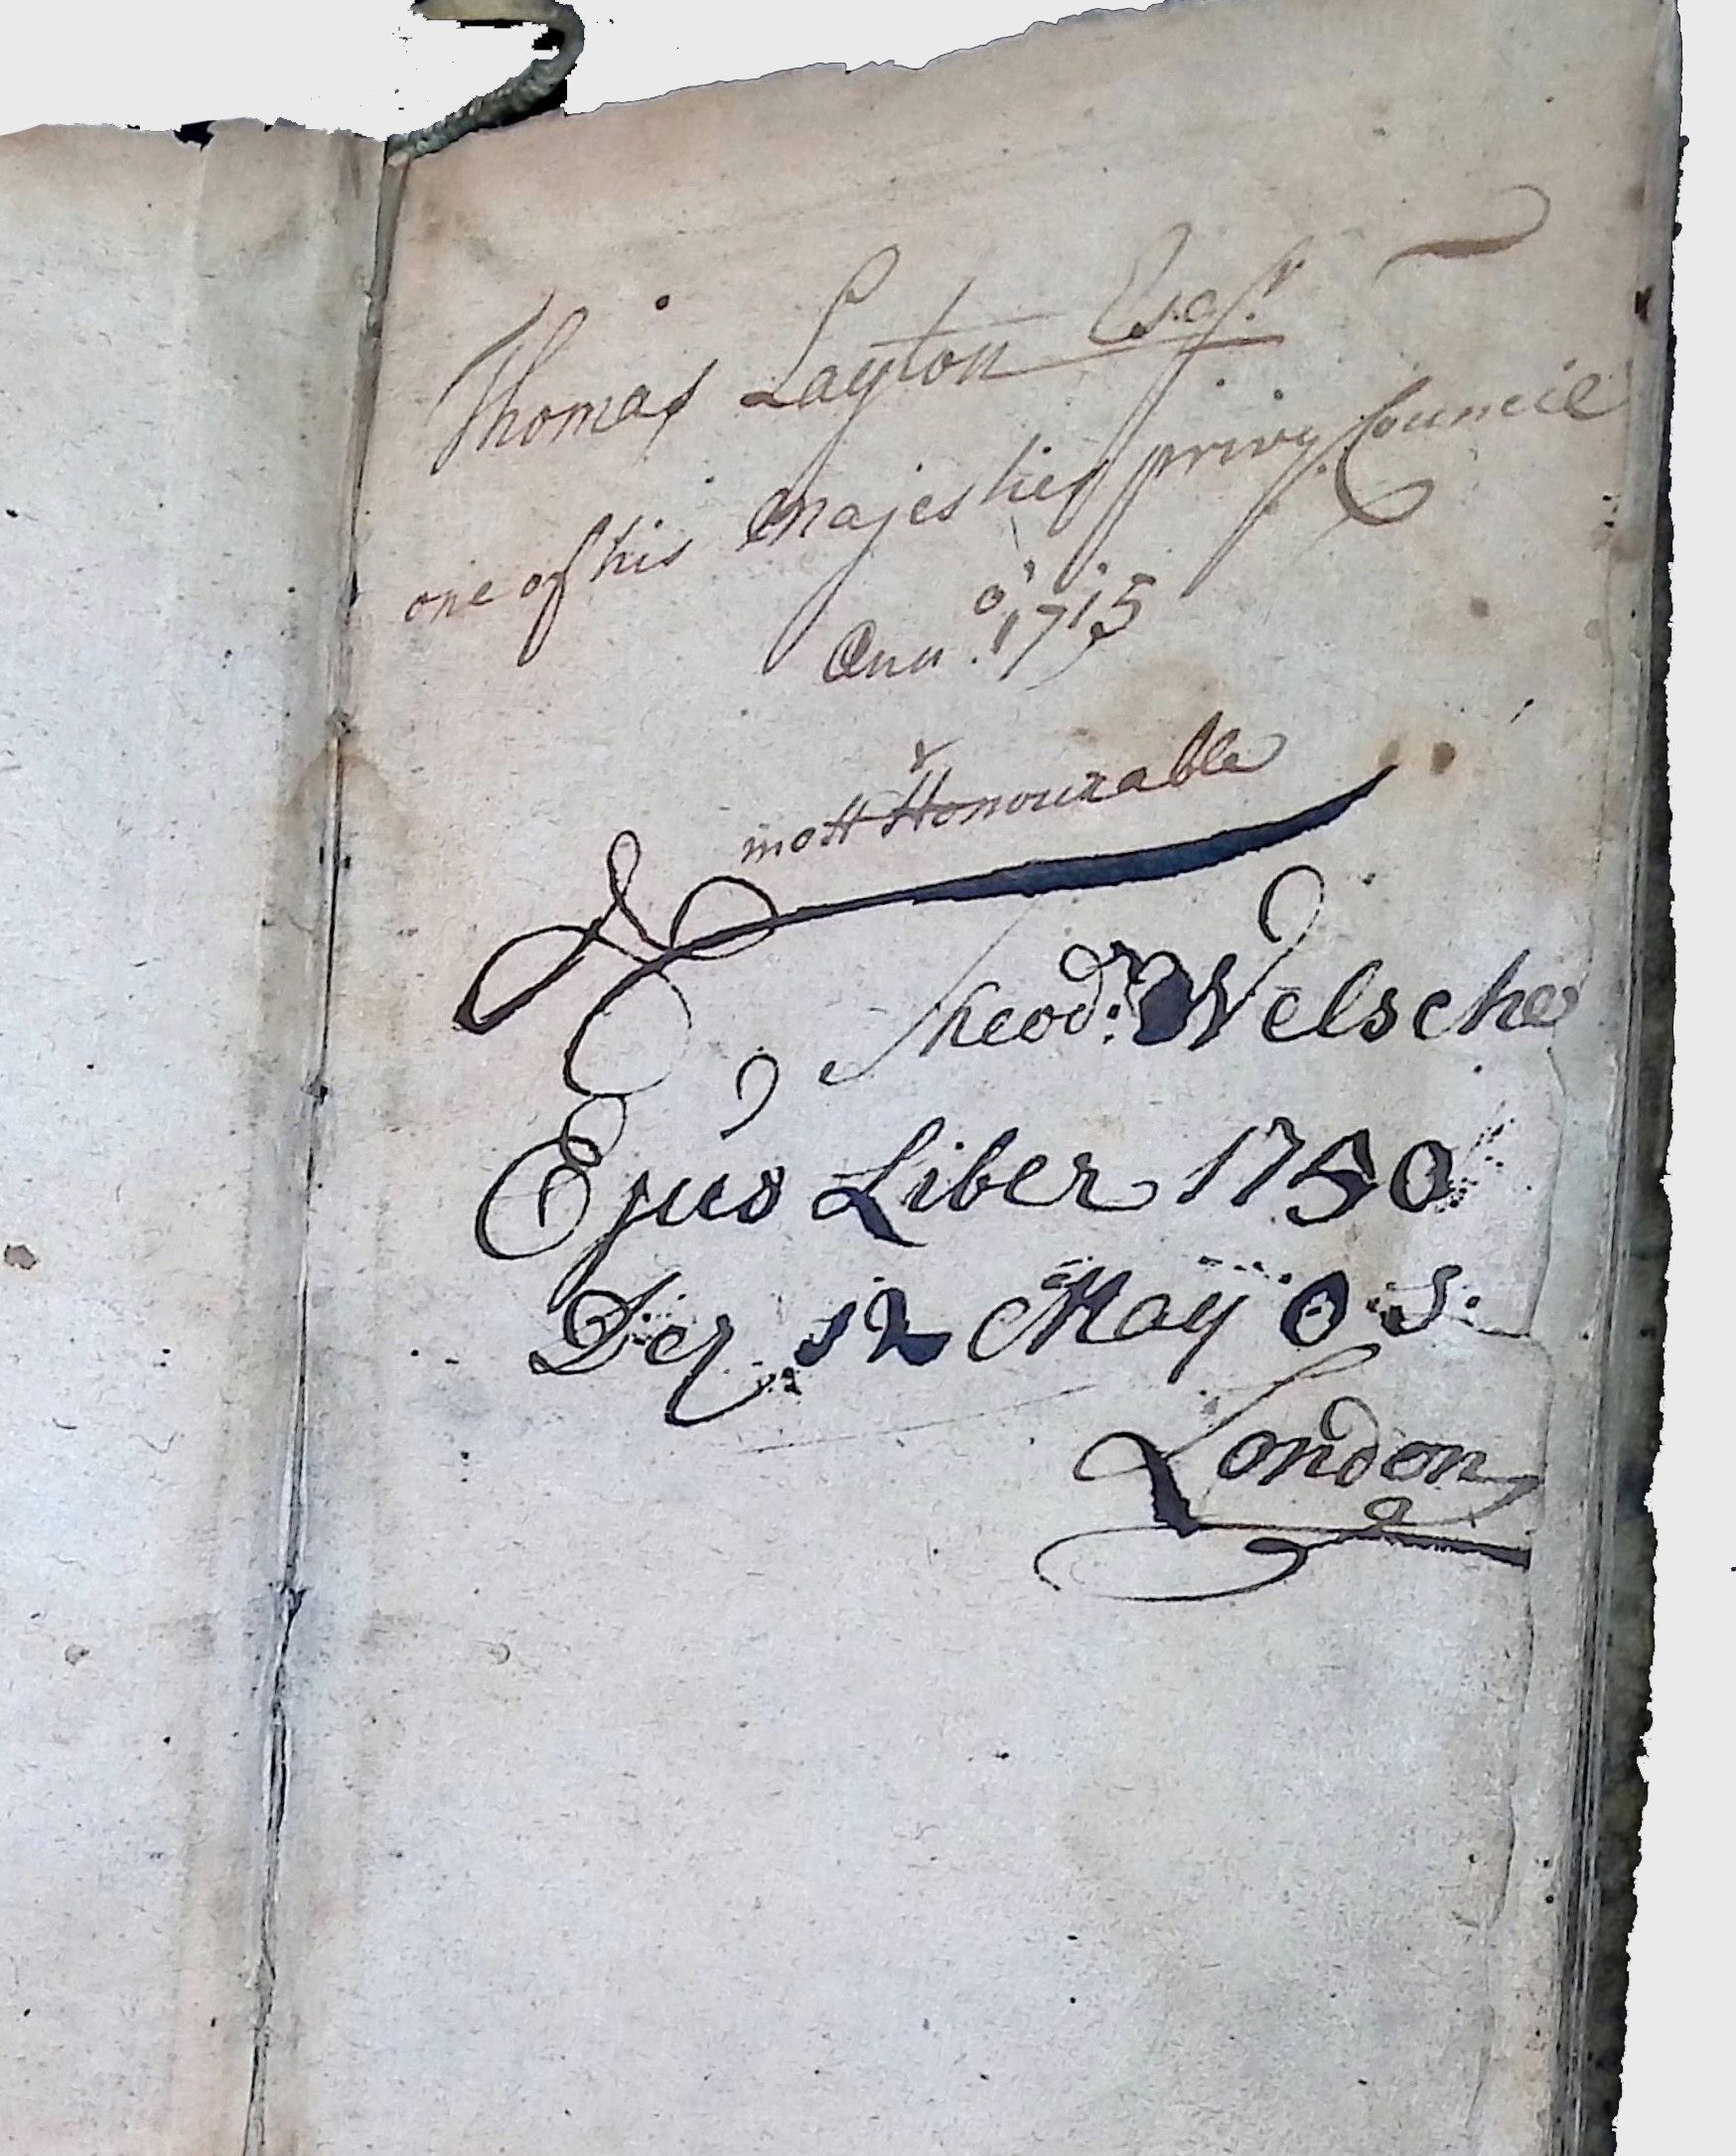 Thomas Layton Esqr.
one of his Majesties privy Council
Anno. 1715
most Honourable
Theodr: Welsche
Ejus Liber 1750
Der 12 May O. S.
London